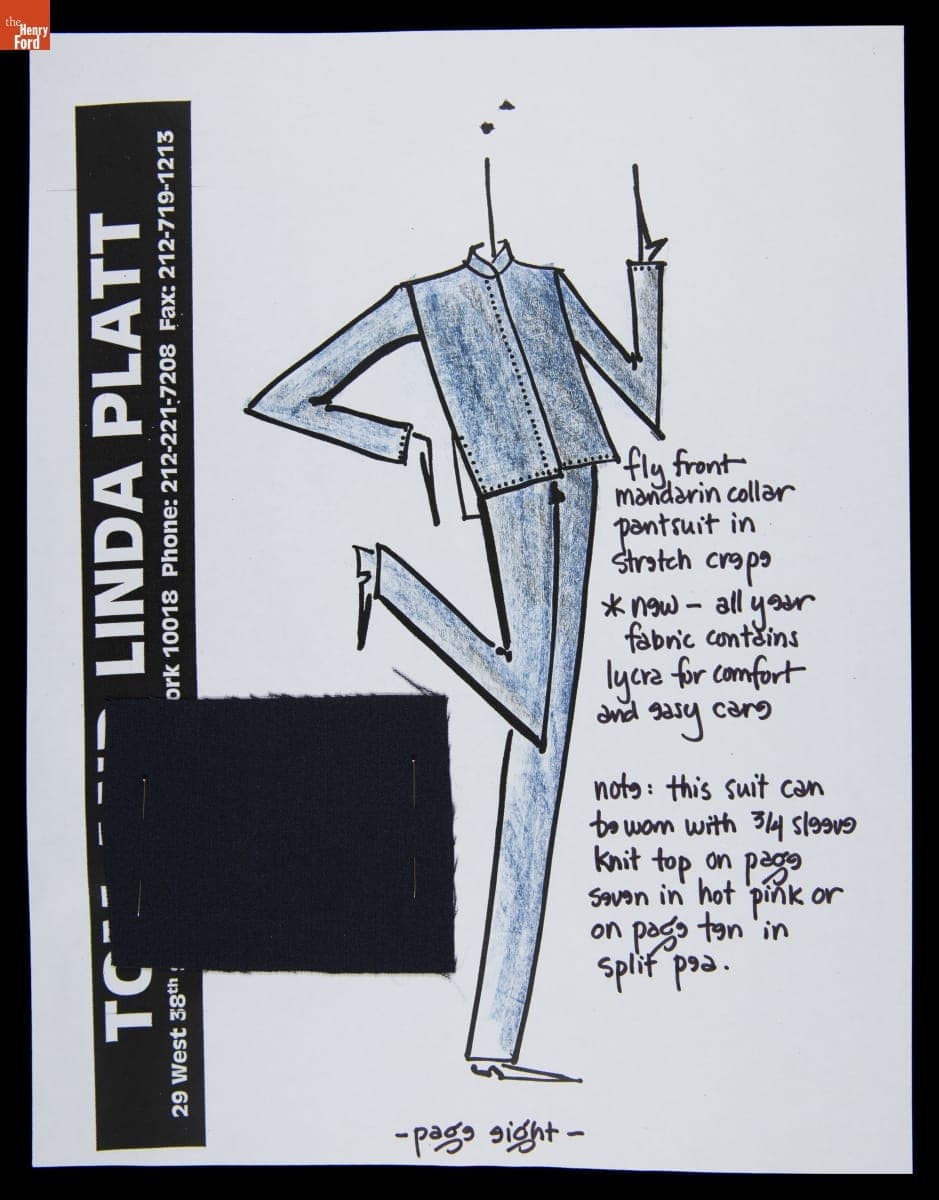 the
Henry
Ford
LINDA PLATT
29 West 38th
ork 10018 Phone: 212-221-7208 Fax: 212-719-1213
fly front
mandarin collar
pantsuit in
stretch crepe
* new - all year
fabric contains
lycra for comfort
and easy care
note: this suit can
be worn with 3/4 sleeve
knit top on page
seven in hot pink or
on page ten in
split pea.
-page eight-